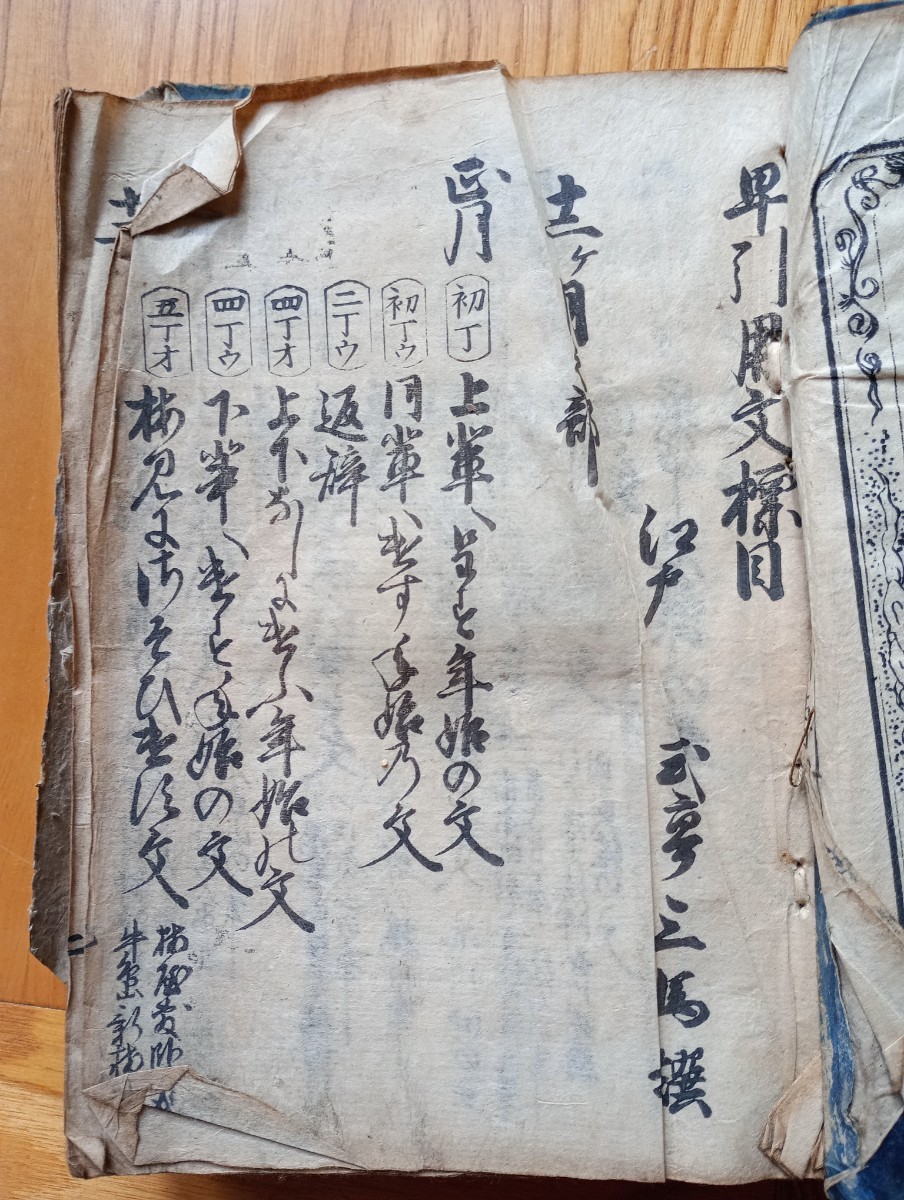 早引用文標目
江戸 式亭三馬撰
十二ヶ月之部
正月
初丁 上輩へ呈す年始の文
初丁ウ 同輩へ遣す年始乃文
二丁ウ 返辞
四丁オ 上下なしに遣ふ年始の文
四丁ウ 下輩へ遣す年始の文
五丁オ 梅見にさそひ遣す文
梅屋敷
二